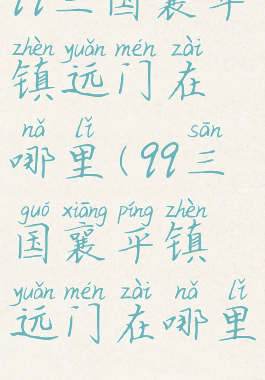 99三国襄平
zhèn yuǎn mén zài
镇远门在
nǎ lǐ sān
哪里(99三
guó xiāng píng zhèn
国襄平镇
yuǎn mén zài nǎ lǐ
远门在哪里